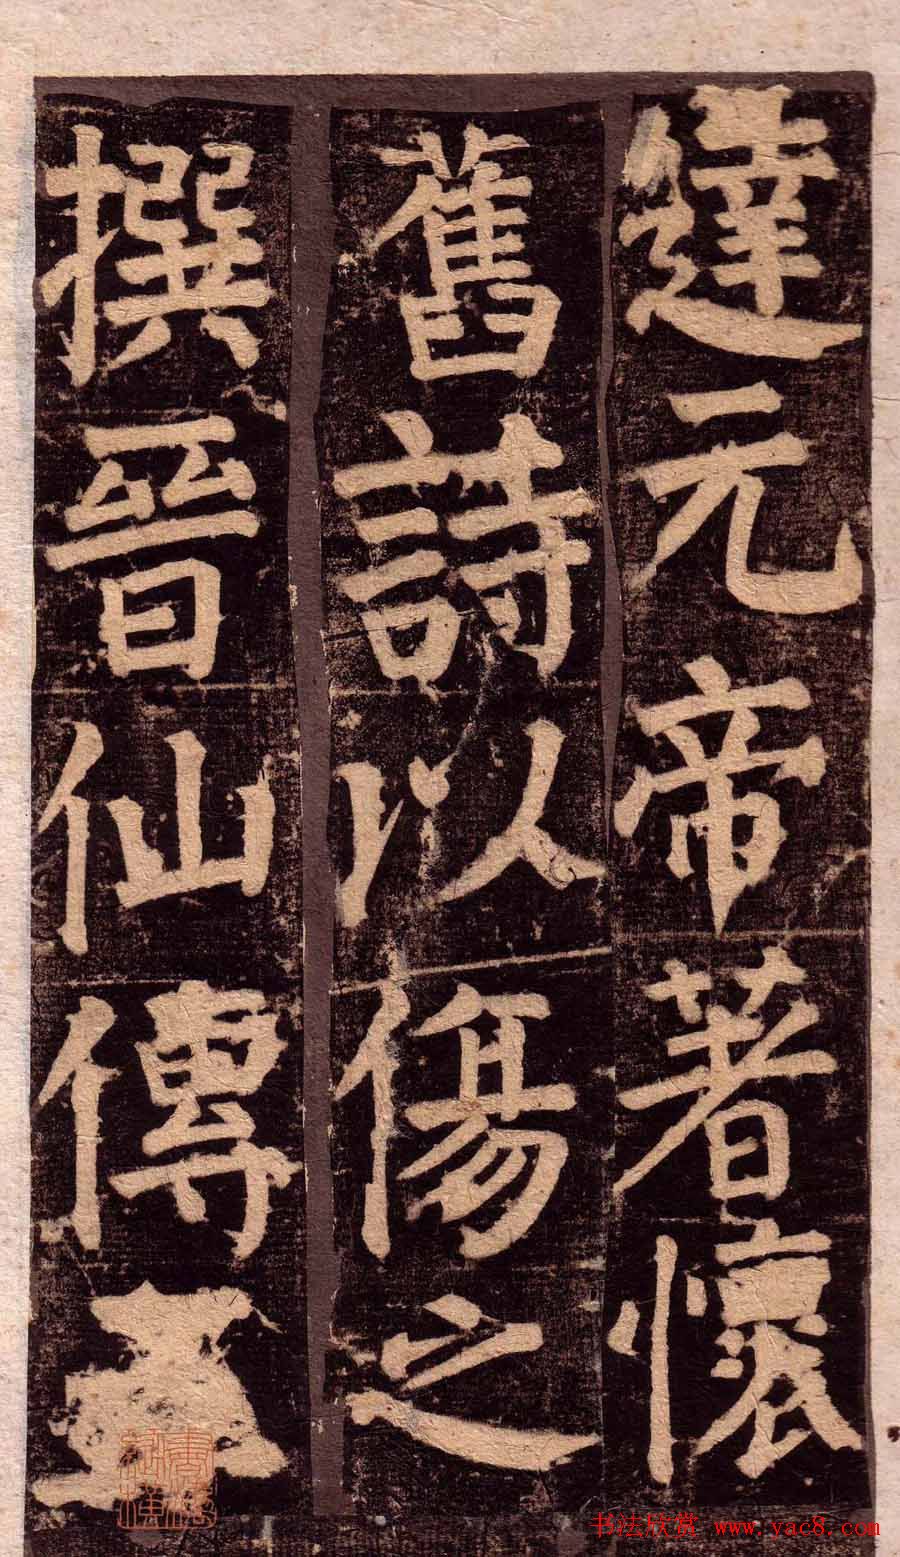 達元帝著懷
舊詩以傷之
撰晉仙傳五
书法欣赏 www.yac8.com